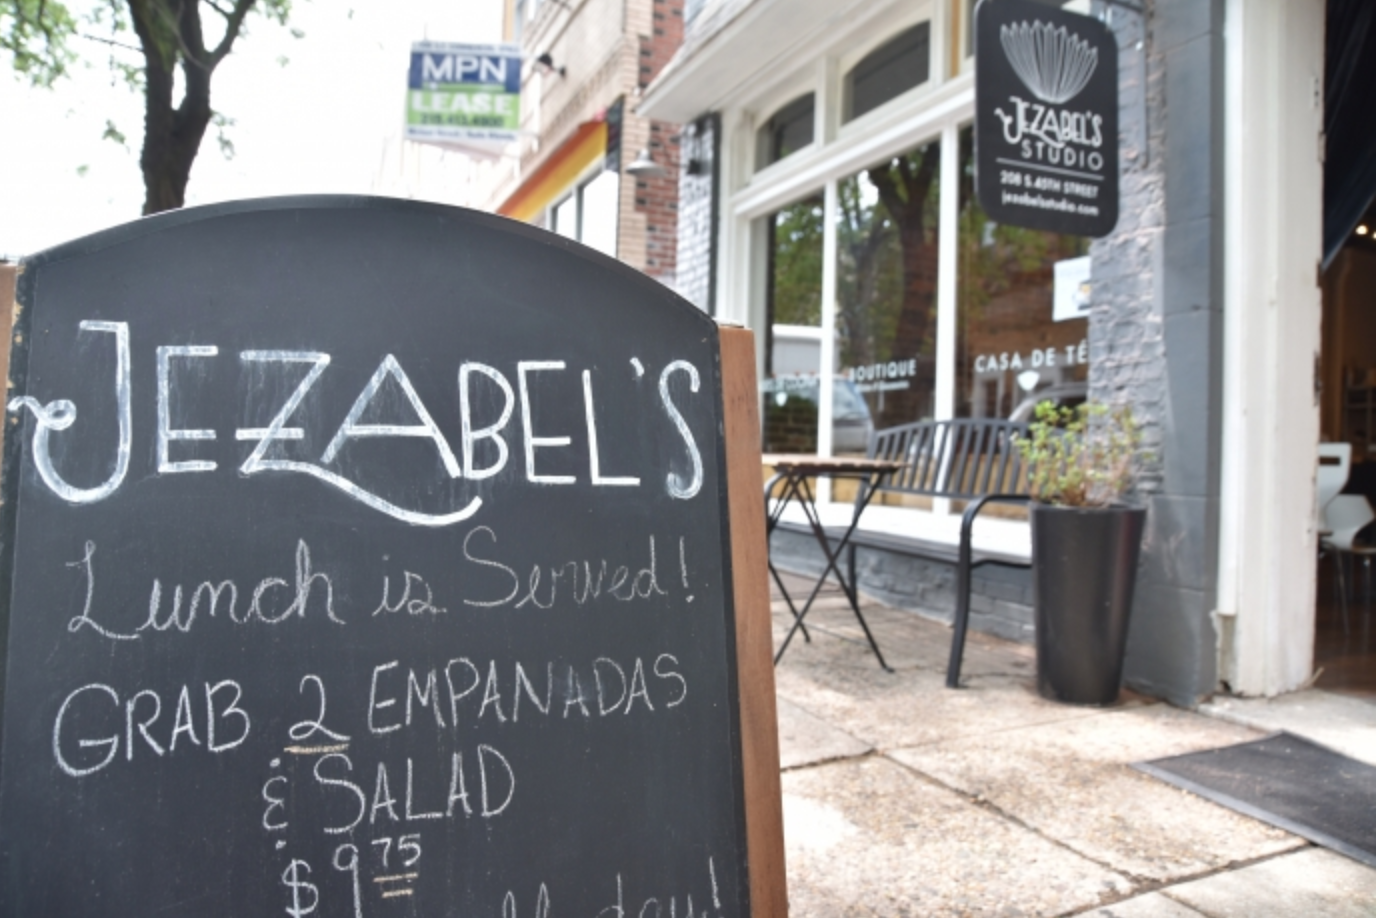 MPN
LEASE
JEZABEL'S
STUDIO
208 S.45TH STREET
jezabelsstudio.com
BOUTIQUE
CASA DE TÉ
JEZABEL'S
Lunch is Served!
GRAB 2 EMPANADAS
& SALAD
$9.75
day!